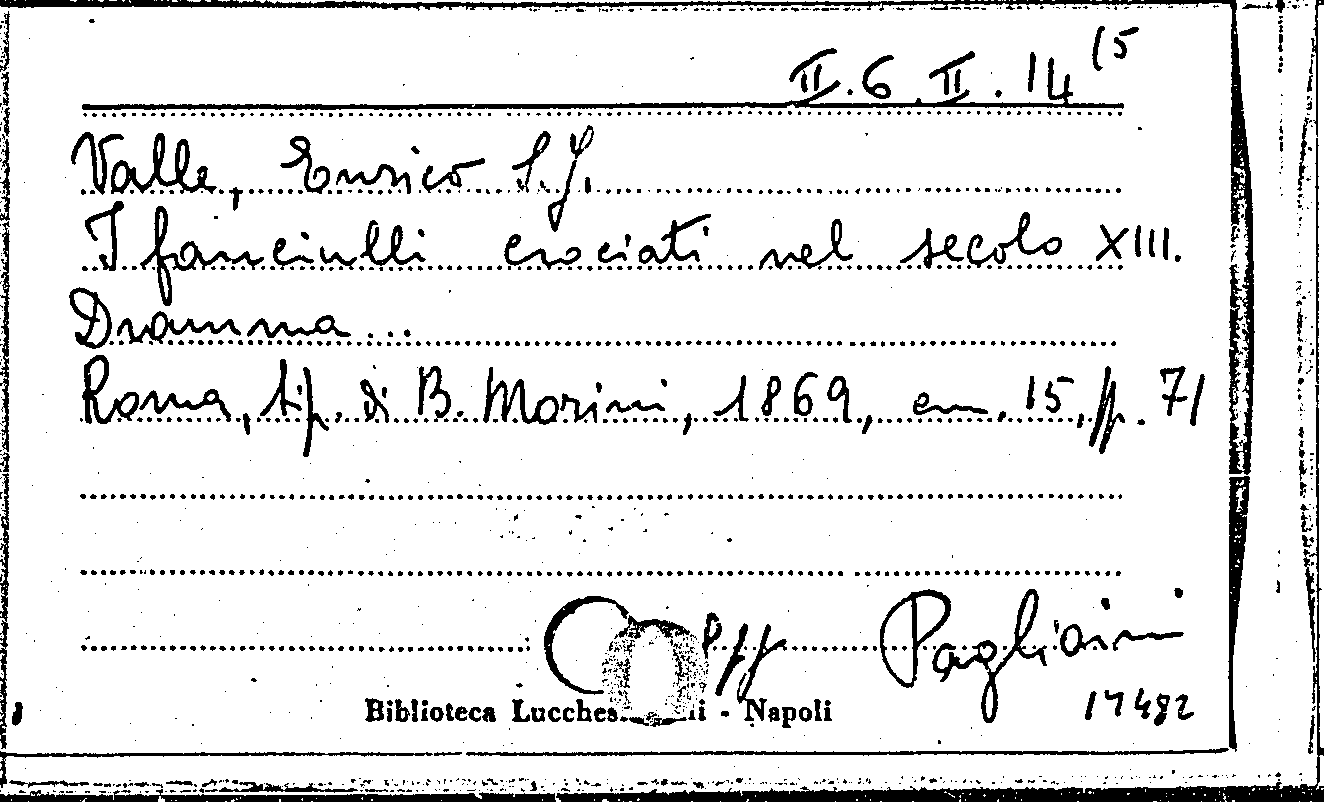 II.6.II.14 15
Valle, Enrico S.J.
I fanciulli crociati nel secolo XIII.
Dramma...
Roma, tip. di B. Morini, 1869, cm. 15, pp. 71
Pagliaini
Biblioteca Lucchesi - Napoli
17482